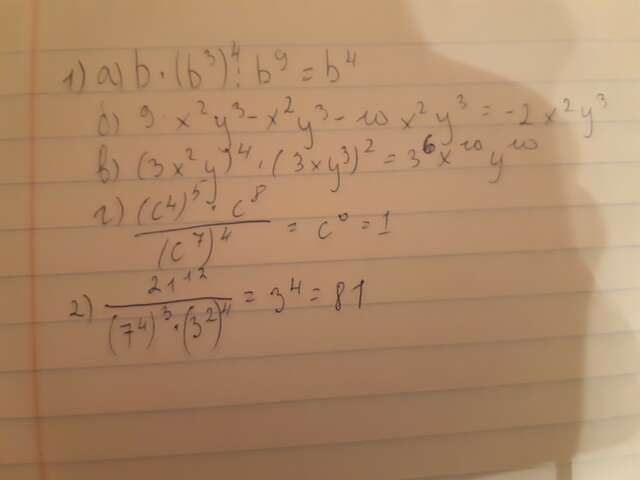 1) а) b · (b³)⁴ : b⁹ = b⁴
б) 9 · x²y³ - x²y³ - 10 x²y³ = -2 x²y³
в) (3x²y)⁴ · (3xy³)² = 3⁶x¹⁰y¹⁰
г) (c⁴)⁵ · c⁸ / (c⁷)⁴ = c⁰ = 1
2) 21¹² / (7⁴)³ · (3²)⁴ = 3⁴ = 81